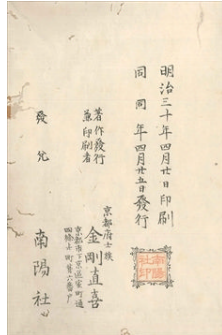 明治三十年四月廿日印刷
同同年四月廿五日發行
著作發行
兼印刷者
京都府士族
金剛直喜
京都市下京區室町通
四條
發兌
南陽社
南陽
社印